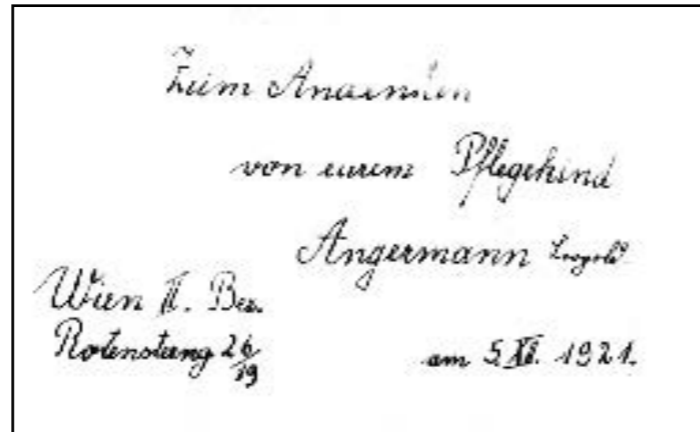 Zum Andenken
von eurem Pflegekind
Angermann Leopold
Wien II. Bez.
26/19
am 5. XII. 1921.